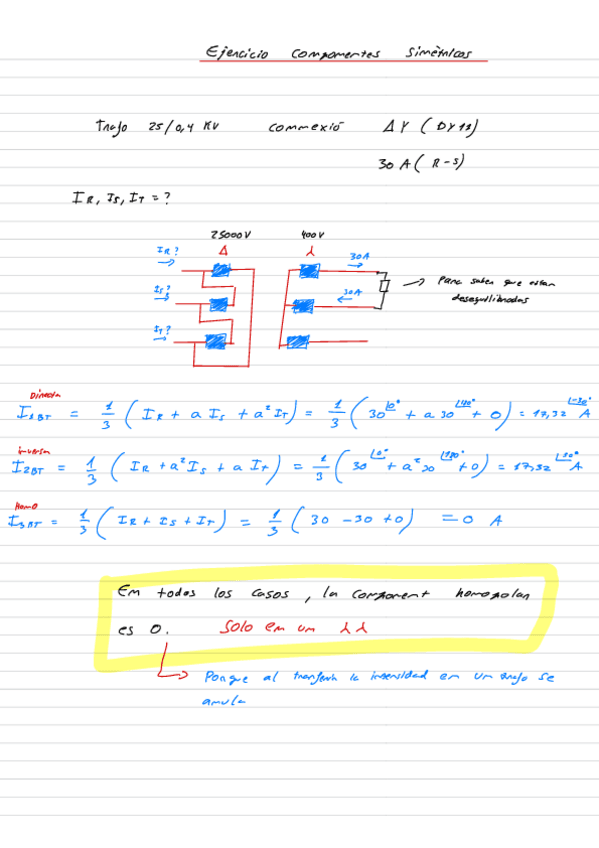 Ejercicio Componentes Simétricos
Trafo 25/0,4 KV Connexió Δ Y (DY11)
30 A (R-S)
IR, IS, IT = ?
25000V 400V
IR? Δ 30A
IS? 30A Para saber que estan
desequilibradas
IT?
Directa
I1BT = 1/3 (IR + a IS + a² IT) = 1/3 (30 + a 30 + 0) = 17,32 A
inversa
I2BT = 1/3 (IR + a² IS + a IT) = 1/3 (30 + a² 30 + 0) = 17,32 A
Homo
I3BT = 1/3 (IR + IS + IT) = 1/3 (30 - 30 + 0) = 0 A
En todos los casos, la component homopolar
es 0. Solo en un
Porque al transferir la intensidad en un trafo se
anula